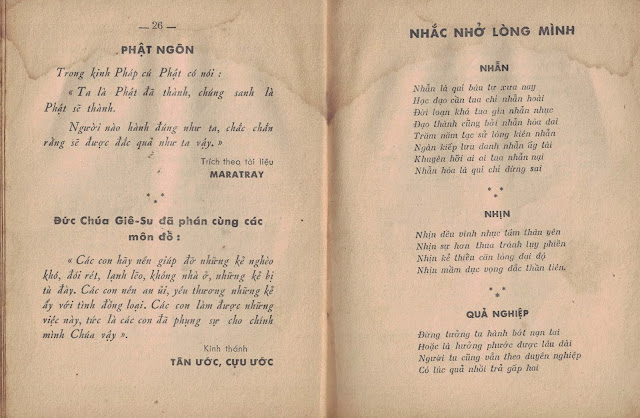 — 26 —
PHẬT NGÔN
Trong kinh Pháp cú Phật có nói :
« Ta là Phật đã thành, chúng sanh là
Phật sẽ thành.
Người nào hành đúng như ta, chắc chắn
rằng sẽ được đắc quả như ta vậy. »
Trích theo tài liệu
MARATRAY
Đức Chúa Giê-Su đã phán cùng các
môn đồ :
« Các con hãy nên giúp đỡ những kẻ nghèo
khó, đói rét, lạnh lẽo, không nhà ở, những kẻ bị
tù đày. Các con nên an ủi, yêu thương những kẻ
ấy với tình đồng loại. Các con làm được những
việc này, tức là các con đã phụng sự cho chính
mình Chúa vậy ».
Kinh thánh
TÂN ƯỚC, CỰU ƯỚC
NHẮC NHỞ LÒNG MÌNH
NHẪN
Nhẫn là quí báu từ xưa nay
Học đạo cần tua chí nhẫn hoài
Đời loạn khá tua gìn nhẫn nhục
Đạo thành cũng bởi nhẫn hòa dai
Trăm năm tạc sử lòng kiên nhẫn
Ngàn kiếp lưu danh nhẫn ấy tài
Khuyên hỡi ai ai tua nhẫn nại
Nhẫn hòa là quí chí đừng sai
NHỊN
Nhịn đều vinh nhục tâm thân yên
Nhịn sự hơn thua tránh lụy phiền
Nhịn kẻ thiếu căn lòng đại độ
Nhịn mầm dục vọng đắc thần tiên.
QUẢ NGHIỆP
Đừng tưởng tu hành bớt nạn tai
Hoặc là hưởng phước được lâu dài
Người tu cũng vẫn theo duyên nghiệp
Có lúc quả nhồi trả gấp hai